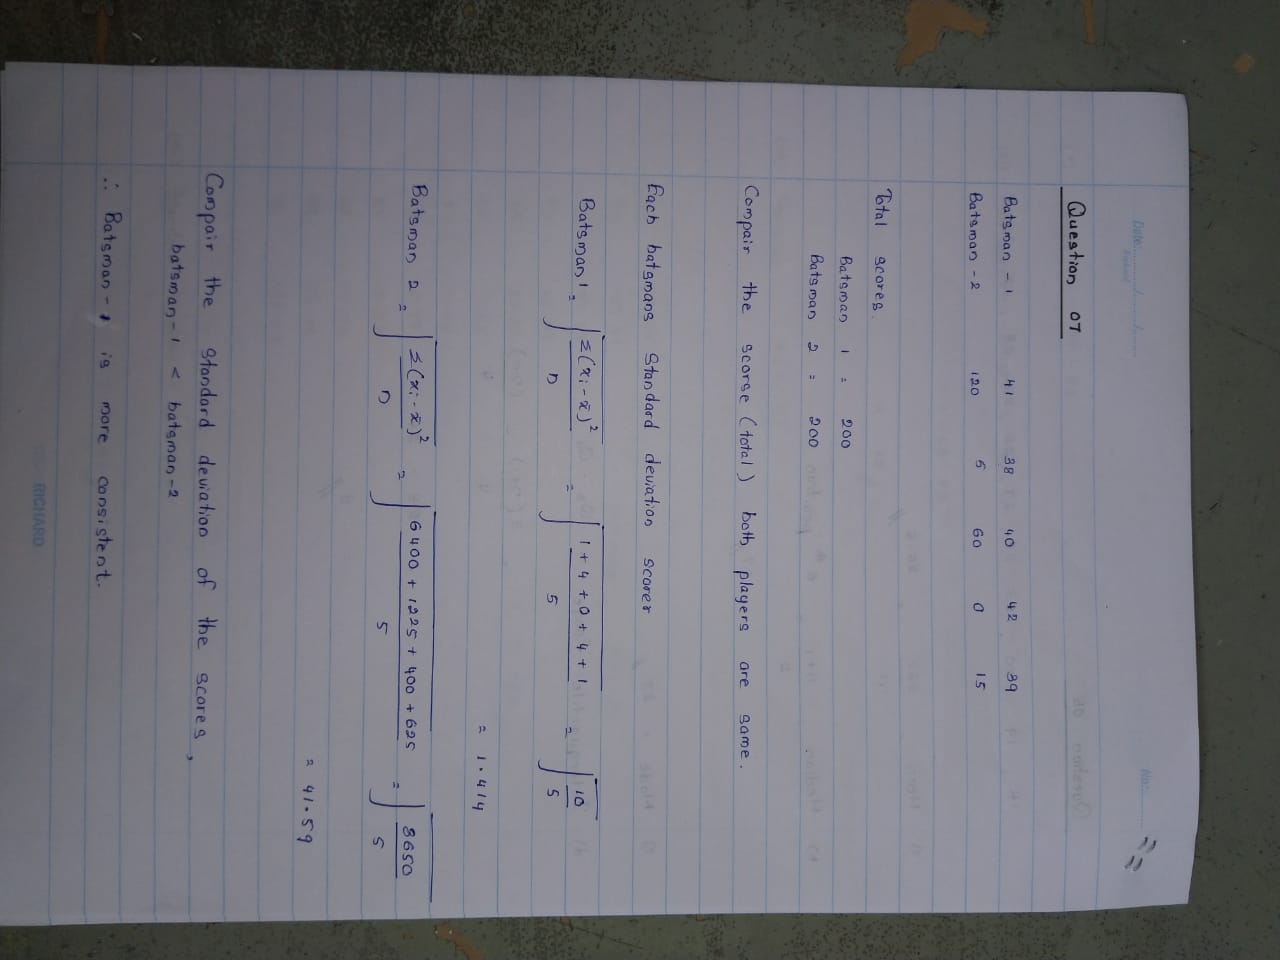 Date:
No:
Question 07
Batsman - 1 41 38 40 42 39
Batsman - 2 120 5 60 0 15
Total scores.
Batsman 1 = 200
Batsman 2 = 200
Compair the scorse (total) both players are same.
Each batsmans Standard deviation scorer
Batsman 1 = √Σ(xi - x̄)²/n = √1 + 4 + 0 + 4 + 1/5 = √10/5
= 1.414
Batsman 2 = √Σ(xi - x̄)²/n = √6400 + 1225 + 400 + 625/5 = √8650/5
= 41.59
Compair the standard deviation of the scores,
batsman-1 < batsman-2
∴ Batsman-1 is more consistent.
RICHARD